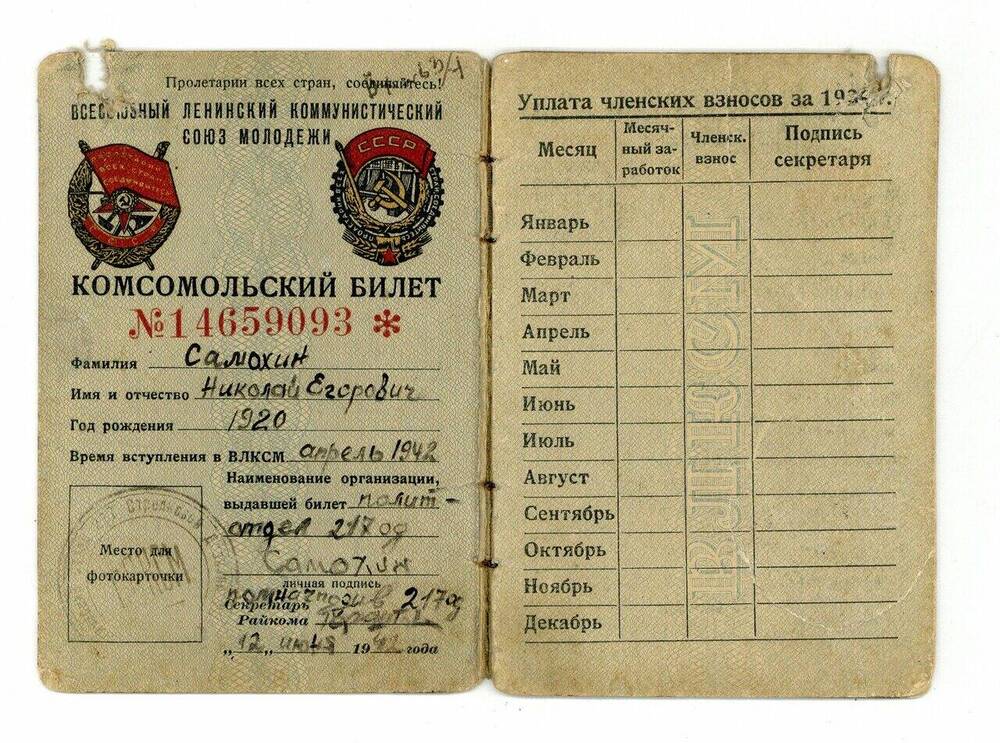 Пролетарии всех стран, соединяйтесь!
ВСЕСОЮЗНЫЙ ЛЕНИНСКИЙ КОММУНИСТИЧЕСКИЙ
СОЮЗ МОЛОДЕЖИ
СССР
КОМСОМОЛЬСКИЙ БИЛЕТ
№14659093 *
Фамилия Самохин
Имя и отчество Николай Егорович
Год рождения 1920
Время вступления в ВЛКСМ апрель 1942
Наименование организации,
выдавшей билет полит-
отдел 217 сд
Самохин
личная подпись
217 сд
Секретарь
Райкома
Место для
фотокарточки
„12„ июня 1942 года
Уплата членских взносов за 19 г.
Месяц Месяч-ный за-работок Членск. взнос Подпись секретаря
Январь
Февраль
Март
Апрель
Май
Июнь
Июль
Август
Сентябрь
Октябрь
Ноябрь
Декабрь
ВЛКСМ